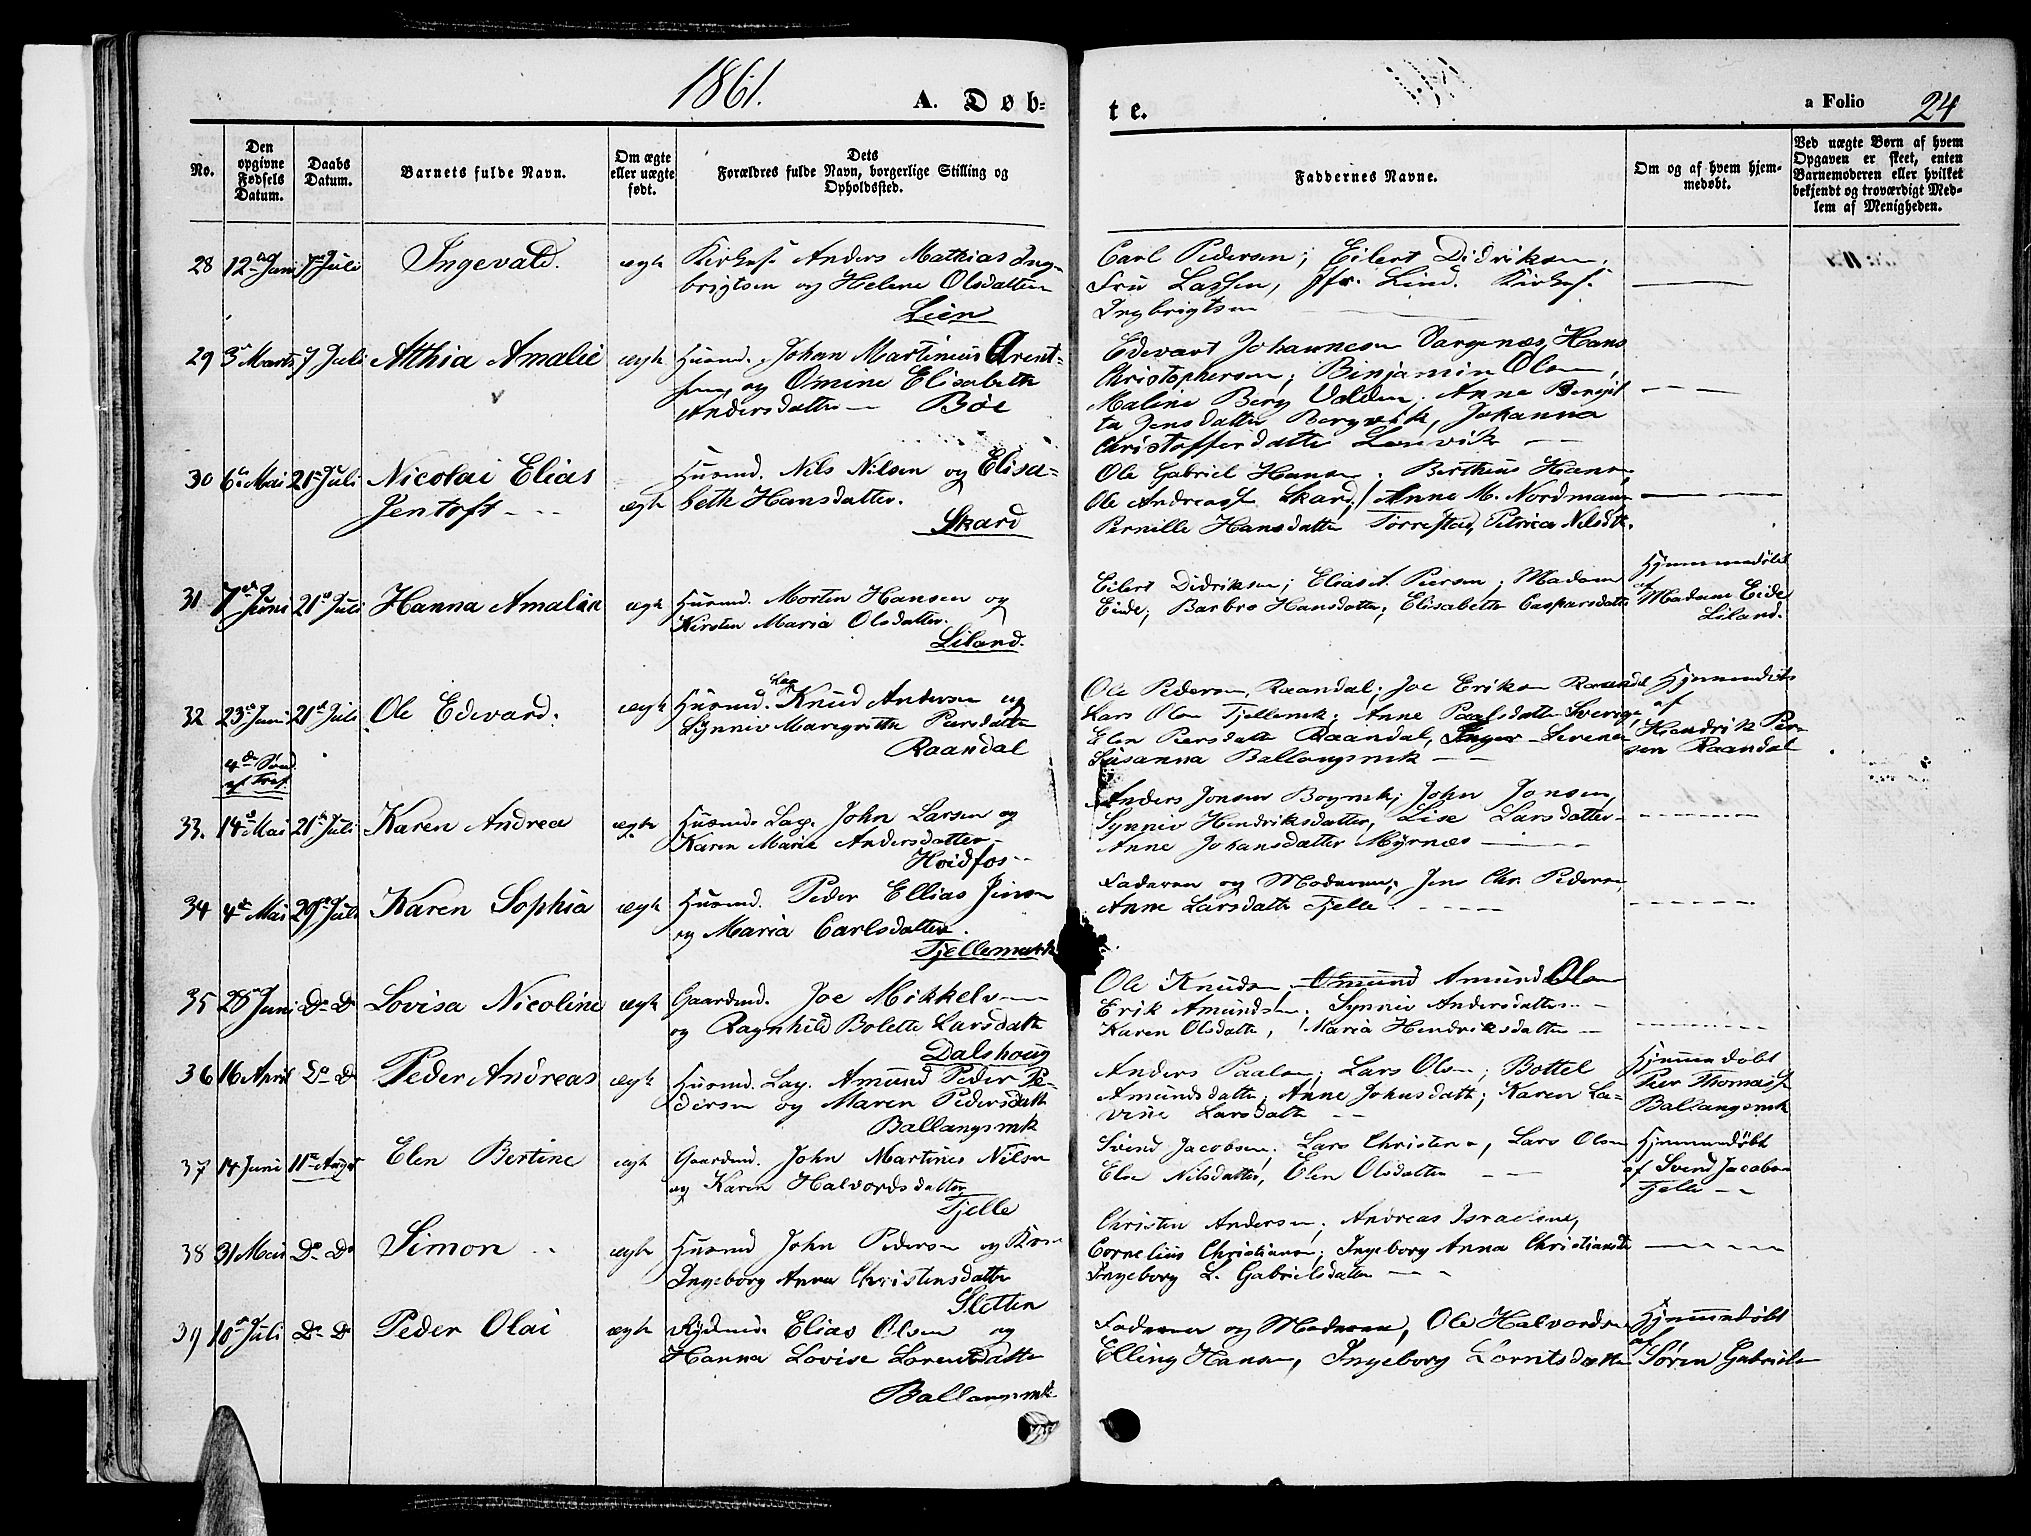 1861.
A. Døb-
te.
a Folio 24
No.
Den
opgivne
Fødsels
Datum.
Daabs
Datum.
Barnets fulde Navn.
Om ægte
eller uægte
født.
Dets
Forældres fulde Navn, borgerlige Stilling og
Opholdssted.
Faddernes Navne.
Om og af hvem hjem-
medøbt.
Ved uægte Børn af hvem
Opgaven er skeet, enten
Barnemoderen eller hvilket
bekjendt og troværdigt Med-
lem af Menigheden.
28 12te Juni 7de Juli Ingevald. ægte Anders Mathias Inge-
brigtsen og Helene Olsdatter
Lien
Carl Pedersen; Eilert Didriksen;
Fru Lassen, Jfr. Lind.
Ingbrigtsen
29 3 Marts 7 Juli Atthia Amalie ægte Husmd. Johan Martinius Arent-
sen og Omine Elisabeth
Andersdatter — Bøe
Edevart Johannesen Vargenæs, Hans
Christophersen; Binjamin Olsen,
Maline Berg Valden. Anne Bergit
ta Jensdatter Bergvik, Johanna
Christofferdatter Lenvik —
30 6te Mai 21de Juli Nicolai Elias
Jentoft
ægte Husmd. Nils Nilsen og Elisa-
beth Hansdatter.
Skard
Ole Gabriel Hansen; Berthius Hansen
Ole Andreas Skard; Anne M. Nordmann
Pernille Hansdatter Torrestad, Petrica Nilsdtr.
31 7de Juni 21de Juli Hanna Amalia ægte Husmd. Morten Hansen og
Kirsten Maria Olsdatter.
Liland.
Eilert Didriksen; Elias A. Piersen; Madam
Eide; Barbro Hansdatter; Elisabeth Caspersdatter
Hjemmedøbt
af
Madame Eide
Liland.
32 23de Juni 21de Juli Ole Edevard. ægte Husmd. Lap Knud Andersen og
Synniv Maregrethe Piersdatter
Raandal
Ole Pedersen Raandal; Joe Eriksen Raandal
Lars Olsen Tjellemrk; Anne Paalsdatter Sverige,
Elen Piersdatter Raandal, Inger Serene
Susanna Ballangsmrk —
Hjemmedøbt
af
Hendrik Per-
sen Raandal
4de Sønd.
ef. Tref.
33. 14de Mai 21de Juli Karen Andrea ægte Husmd. Lap. John Larsen og
Karen Marie Andersdatter —
Hvidfos
Anders Jonsen Boymrk; John Jonsen,
Synniv Hendriksdatter, Lise Larsdatter —
Anne Johansdatter Myrnæs —
34 4de Mai 29de Juli Karen Sophia ægte Husmd. Peder Ellias Jensen
og Maria Carlsdatter.
Tjellemark
Faderen og Moderen; Jens Chr. Pedersen,
Anne Larsdatter Tjelle
35 28de Juni Do Do Lovisa Nicoline ægte Gaardmd. Joe Mikkelsen
og Ragnhild Bolette Larsdatter
Dalshoug
Ole Knudsen, Amund Amund Olsen
Erik Amundsen, Synniv Andersdatter —
Karen Olsdatter, Maria Hendriksdatter —
36 16 April Do Do Peder Andreas ægte Husmd. Lap. Amund Peder Pe-
dersen og Maren Pedersdatter
Ballangsmrk
Anders Paalsen; Lars Olsen; Bottel
Amundsdatter; Anne Johnsdatter; Karen La-
vine Larsdatter —
Hjemmedøbt
Peer Thomass
Ballangsmrk
37 14 Juni 11te August Elen Bertine ægte Gaardmd. John Martines Nilsen
og Karen Halvordsdatter
Tjelle
Svend Jacobsen; Lars Christensen, Lars Olsen
Else Nilsdatter, Elen Olsdatter —
Hjemmedøbt
af Svend Jacobsen
Tjelle
38 31 Mai Do Do Simon ægte Husmd John Pedersen og Kone
Ingeborg Anna Christensdatter
Sletten
Christen Andersen; Andreas Israelsen,
Cornelius Christiansen; Ingeborg Anna Christiansdtr
Ingeborg L. Gabrielsdatter
39 10de Juli Do Do Peder Olai ægte Elias Olsen og
Hanna Lovise Lorentsdatter
Ballangsmrk
Faderen og Moderen, Ole Halvordsen
Elling Hansen, Ingeborg Lorntsdatter
Hjemmedøbt
af
Søren Gabrielsen